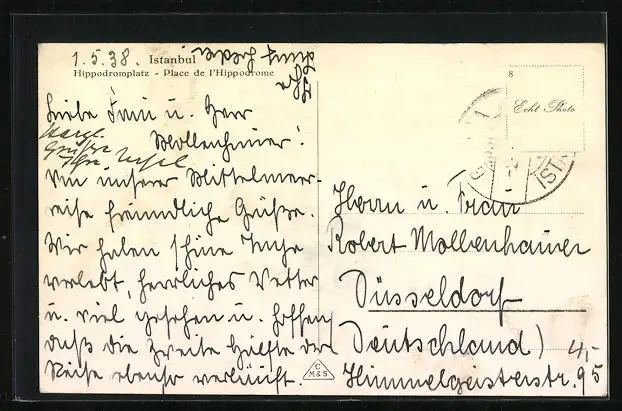 1.5.38. Istanbul
Hippodromplatz - Place de l'Hippodrome
Liebe Frau u. Herr
Mollenhauer!
Herzl.
Grüsse
Ihre
Von unserer Mittelmeer-
reise freundliche Grüße.
Wir haben schöne Tage
verlebt, herrliches Wetter
u. viel gesehen u. hoffen
daß die zweite Hälfte der
Reise ebenso verläuft.
Ihr
C
M&S
8
Echt Photo
IST
Herrn u. Frau
Robert Mollenhauer
Düsseldorf
Deutschland)
4,-
Himmelgeisterstr. 95